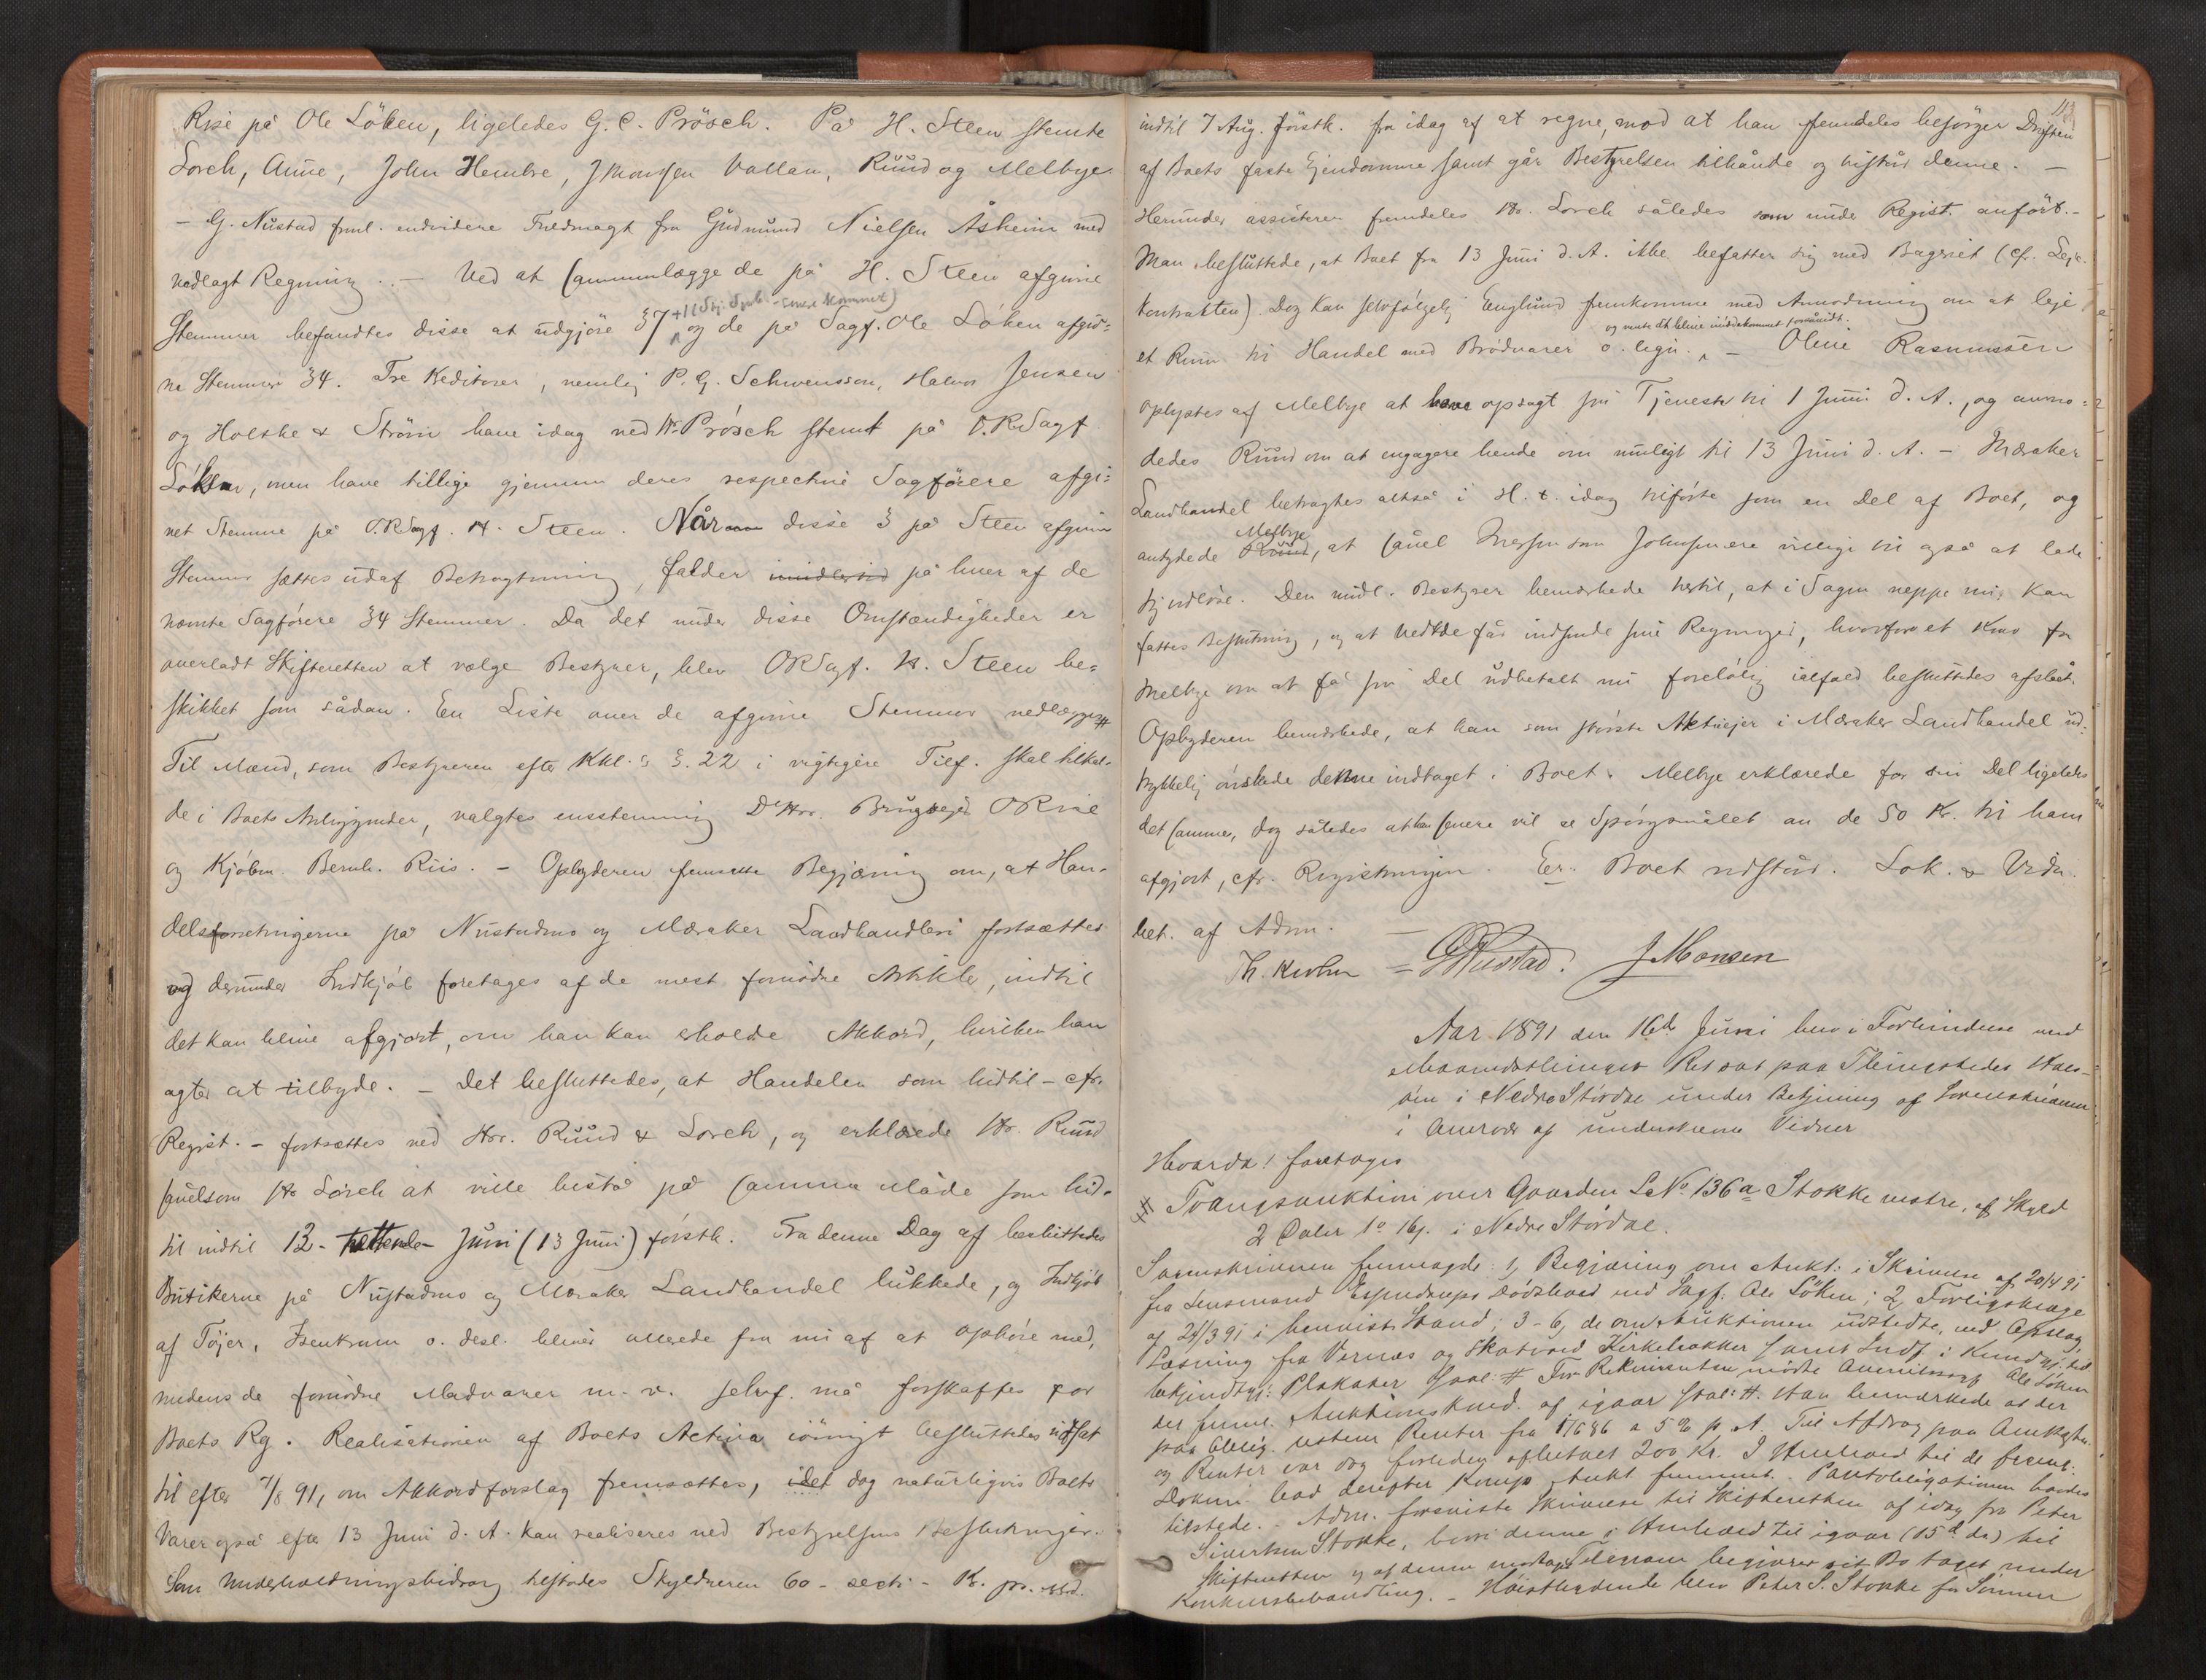 Risè på Ole Löken, ligeledes G. C. Prösch. På H. Steen stemte
Lorch, Aune, John Hembre, J Monsen Vallan, Ruud og Melbye.
- G. Nustad freml. endvidere Fuldmagt fra Gudmund Nielsen Åsheim med
vedlagt Regning. - Ved at sammenlægge de på H. Steen afgivne
Stemmer befandtes disse at udgjöre 37 og de på Sagf. Ole Löken afgiv=
ne Stemmer 34. Tre Keditorer, nemlig P. G. Schwensson, Halvor Jensen
og Holtke & Ström have idag ved Hr. Prösch stemt på O.R.Sagf
Löken, men have tillige gjennem deres respective Sagförere afgi=
vet Stemme på O.RSagf. H. Steen. Når disse 3 på Steen afgivne
Stemmer sættes udaf Betragtning, falder imidlertid på hver af de
nævnte Sagförere 34 Stemmer. Da det under disse Omstændigheder er
overladt Skifteretten at vælge Bestyrer, blev ORSagf. H. Steen be=
skikket som sådan. En Liste over de afgivne Stemmer vedlægges #
Til Mænd, som Bestyreren efter Kkl.s §. 22 i vigtigere Tilf. skal tilkal-
de i Boets Anliggender, valgtes enstemmig D'Hrr. Brugseier O Rise
og Kjöbm. Bernh. Riis. - Opbyderen fremsatte Begjæring om, at Han-
delsforretningerne på Nustadmo og Meraker Landhandleri fortsættes
og derunder Indkjöb foretages af de mest fornödne Artikler, indtil
det kan blive afgjort, om han kan erholde Akkord, hvilken han
agter at tilbyde. - Det besluttedes, at Handelen som hidtil - cfr.
Regist. - fortsættes ved Hrr. Ruud & Lorch, og erklærede Hr. Ruud
såvelsom Hr Lorch at ville bistå på samme Måde som hid-
til indtil 13 - trettende - Juni (13 Juni) förstk. Fra denne Dag af besluttedes
Butikerne på Nustadmo og Meraker Landhandel lukkede, og Indkjöb
af Töjer, Isenkram o. desl. bliver allerede fra nu af at ophöre med,
medens de fornödne Madvarer m. v. selvf. må forskaffes for
Boets Rg. Realisationen af Boets Activa iövrigt besluttedes udsat
til efter 7/8 91, om Akkordforslag fremsættes, idet dog naturligvis Boets
Varer også efter 13 Juni d. A. kan realiseres ved Bestyrelsens Beslutninger.
Som Underholdningsbidrag tilstodes Skyldneren 60 - secti - Kr. pr. Md.
indtil 7 Aug. förstk. fra idag af at regne, mod at han fremdeles besörger Driften
af Boets faste Ejendomme samt går Bestyrelsen tilhånde og bistår denne. -
Herunder assisterer fremdeles Hr. Lorch således som under Regist. anfört. -
Man besluttede, at Boet fra 13 Juni d. A. ikke befatter sig med Bageriet (cf. Leje-
kontrakten). Dog kan selvfölgelig Englund fremkomme med Anmodning om at leje
et Rum til Handel med Brödvarer o. lign. - Oline Rasmussen
oplystes af Melbye at have opsagt sin Tjeneste til 1 Juni d. A., og anmo=
dedes Ruud om at engagere hende om muligt til 13 Juni d. A. - Meraker
Landhandel betragtes altså i H. t. idag tilförte som en Del af Boet, og
antydede Melbye, at såvel Iversen som Johnsen ere villige til også at lade
sig udlöse. Den midl. Bestyrer bemærkede hertil, at i Sagen neppe nu kan
fattes Beslutning, og at Vedkde får indsende sine Regninger, hvorfor et Krav fra
Melbye om at få sin Del udbetalt nu forelöbig ialfald besluttedes afslået.
Opbyderen bemærkede, at han som störste Aktieejer i Meraker Landhandel ud-
trykkelig önskede denne indtaget i Boet. Melbye erklærede for sin Del ligeledes
det samme, dog således at han senere vil se Spörgsmålet om de 50 Kr. til ham
afgjort, cfr. Registreringen. Er. Boet udstår. Lok. & Vidn.
bet. af Adm. -
Th. Krohn = GNustad. J Monsen
Aar 1891 den 16de Juni blev i Forbindelse med
Maanedsthinget Ret sat paa Thingstedet Hals-
öen i Nedre Stördal under Betjening af Sorenskriveren
i Overvær af underskrevne Vidner
Hvorda! foretoges
# Tvangsauktion over Gaarden LNo 136a Stokke vestre, af Skyld
2 Daler 1o 16s. i Nedre Stördal.
Sorenskriveren fremlagde: 1, Begjæring om Aukt: i Skrivelse af 20/4 91
fra Lensmand Dödsbo ved Sagf. Ole Löken; 2, Forligsklage
af 24/3 91 i henvist Stand; 3-6, de om Auktionen udstedte, ved Opslag,
Læsning fra Vernes og Skatvold Kirkebakker samt Indf. i Kundgj. tid.
bekjendtgj: Plakater saal: # For Rekvirenten mödte Overretssagf Ole Löken
der freml. Auktionskund. af igaar saal: #. Han bemærkede at der
paa Oblig. resterer Renter fra 1/6 86 a 5 % p. A. Til Afdrag paa Omkostn.
og Renter var dog forleden afbetalt 200 Kr. I Henhold til de freml.
Dokum. bad derefter Komp. Aukt fremmet. Pantobligationen havdes
tilstede. - Adm. foreviste Skrivelse til Skifteretten af idag fra Peter
Sivertsen Stokke, hvori denne i Henhold til igaar (15de ds) til
Skifteretten og af denne modtaget Telegram begjærer sit Bo taget under
Konkursbehandling. - Höistbydende blev Peter S. Stokke for Sönnen